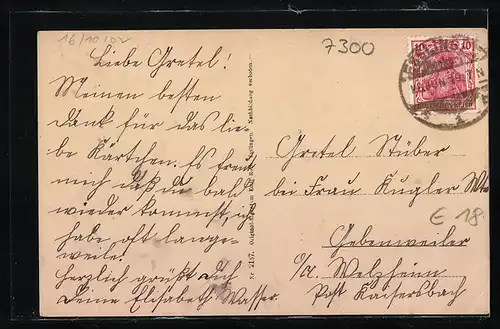 16/10 02
7300
Liebe Gretel!
Meinen besten
Dank für das lie-
be Kärtchen. Es freut
mich daß du bald
wieder kommst, ich
habe oft lange-
weile.
Herzlich grüßt Dich
Deine Elisabeth Wasser.
Nr. 2187. Nachbildung verboten.
10 10
Gretel Stüber
bei Frau Kugler
€ 18
Gebenweiler
O/A. Welzheim
Post Kaisersbach